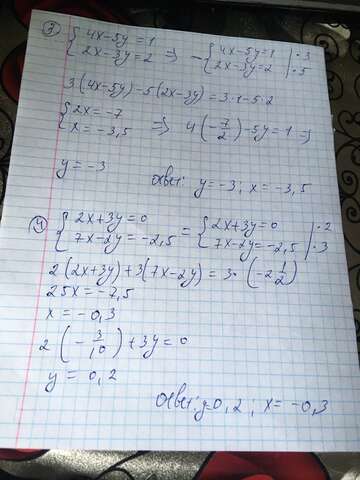 3) { 4x-5y=1 => - { 4x-5y=1 | · 3
2x-3y=2 2x-3y=2 | · 5
3(4x-5y)-5(2x-3y)=3·1-5·2
{ 2x=-7
x=-3,5 => 4(-7/2)-5y=1 =>
y=-3 ответ: y=-3; x=-3,5
4) { 2x+3y=0 = { 2x+3y=0 | · 2
7x-2y=-2,5 7x-2y=-2,5 | · 3
2(2x+3y)+3(7x-2y)=3·(-2 1/2)
25x=-7,5
x=-0,3
2(-3/10)+3y=0
y=0,2
ответ: y=0,2; x=-0,3